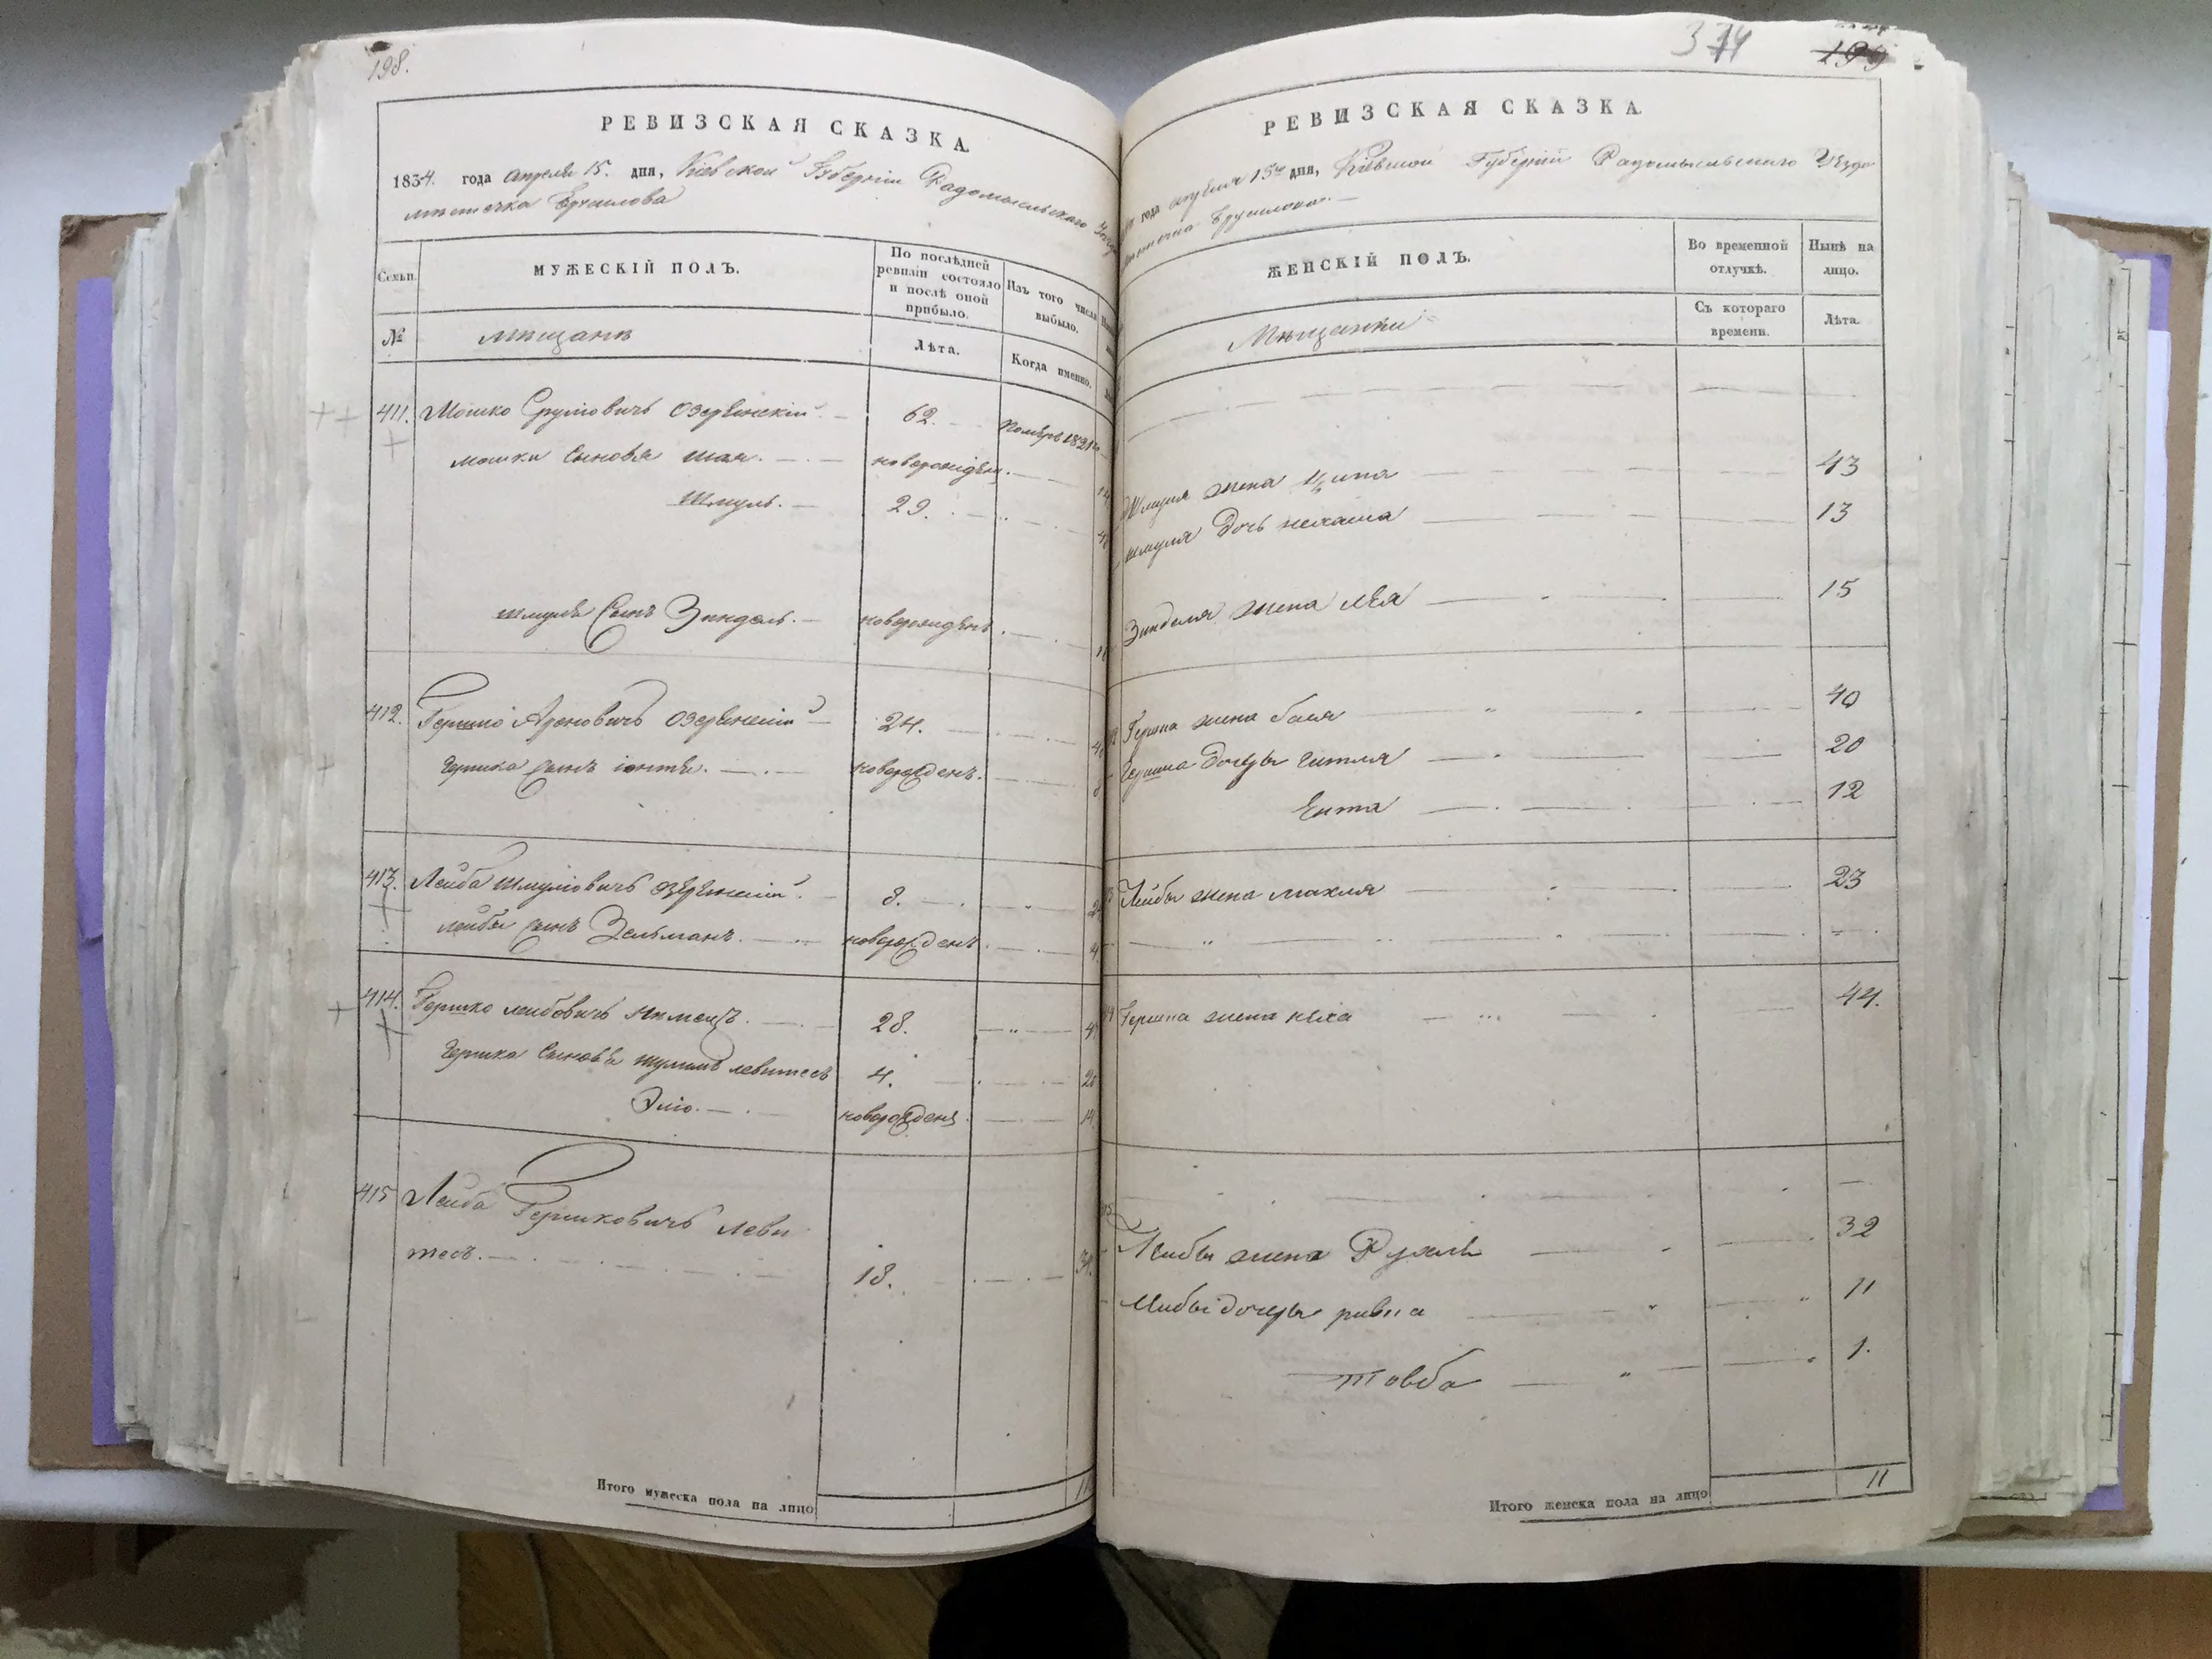 198.
РЕВИЗСКАЯ СКАЗКА.
1834. года апреля 15. дня, Кіевской Губерніи Радомысльскаго
местечка Брусилова
Семьи.
МУЖЕСКІЙ ПОЛЪ.
По послѣдней ревизіи состояло и послѣ оной прибыло.
Изъ того числа выбыло.
№
мещане
Лѣта.
Когда именно.
411. Мошко Сруліовичъ Озерянскій 62.
мошки сыновья шая. новорожденъ.
Шмуль. 29.
шмуля Сынъ Зиндель. новорожденъ.
412. Гершко Ароновичъ Озерянскій 24.
гершка сынъ іонтя. новорожденъ.
413. Лейба шмуліовичъ озерянскій. 8.
лейбы сынъ Зельманъ. новорожденъ.
414. Гершко лейбовичъ 28.
гершка сыновья левитесъ 4.
Эліо. новорожденъ.
415 Лейба Гершковичъ Леви
тесъ. 18.
Итого мужеска пола на лицо
374
199
РЕВИЗСКАЯ СКАЗКА.
года апреля 15го дня, Кіевской Губерніи Радомысльскаго Уезда
местечка Брусилова.
ЖЕНСКІЙ ПОЛЪ.
Во временной отлучкѣ.
Нынѣ на лицо.
Мещанки
Съ котораго времени.
Лѣта.
Шмуля жена 43
шмуля дочь нехама 13
Зинделя жена лея 15
Герша жена бася 40
Герша дочеры гитля 20
Ента 12
Лейбы жена махля 23
Герша жена 44.
Лейбы жена Рухля 32
Лейбы дочеры ривка 11
товба 1.
Итого женска пола на лицо 11